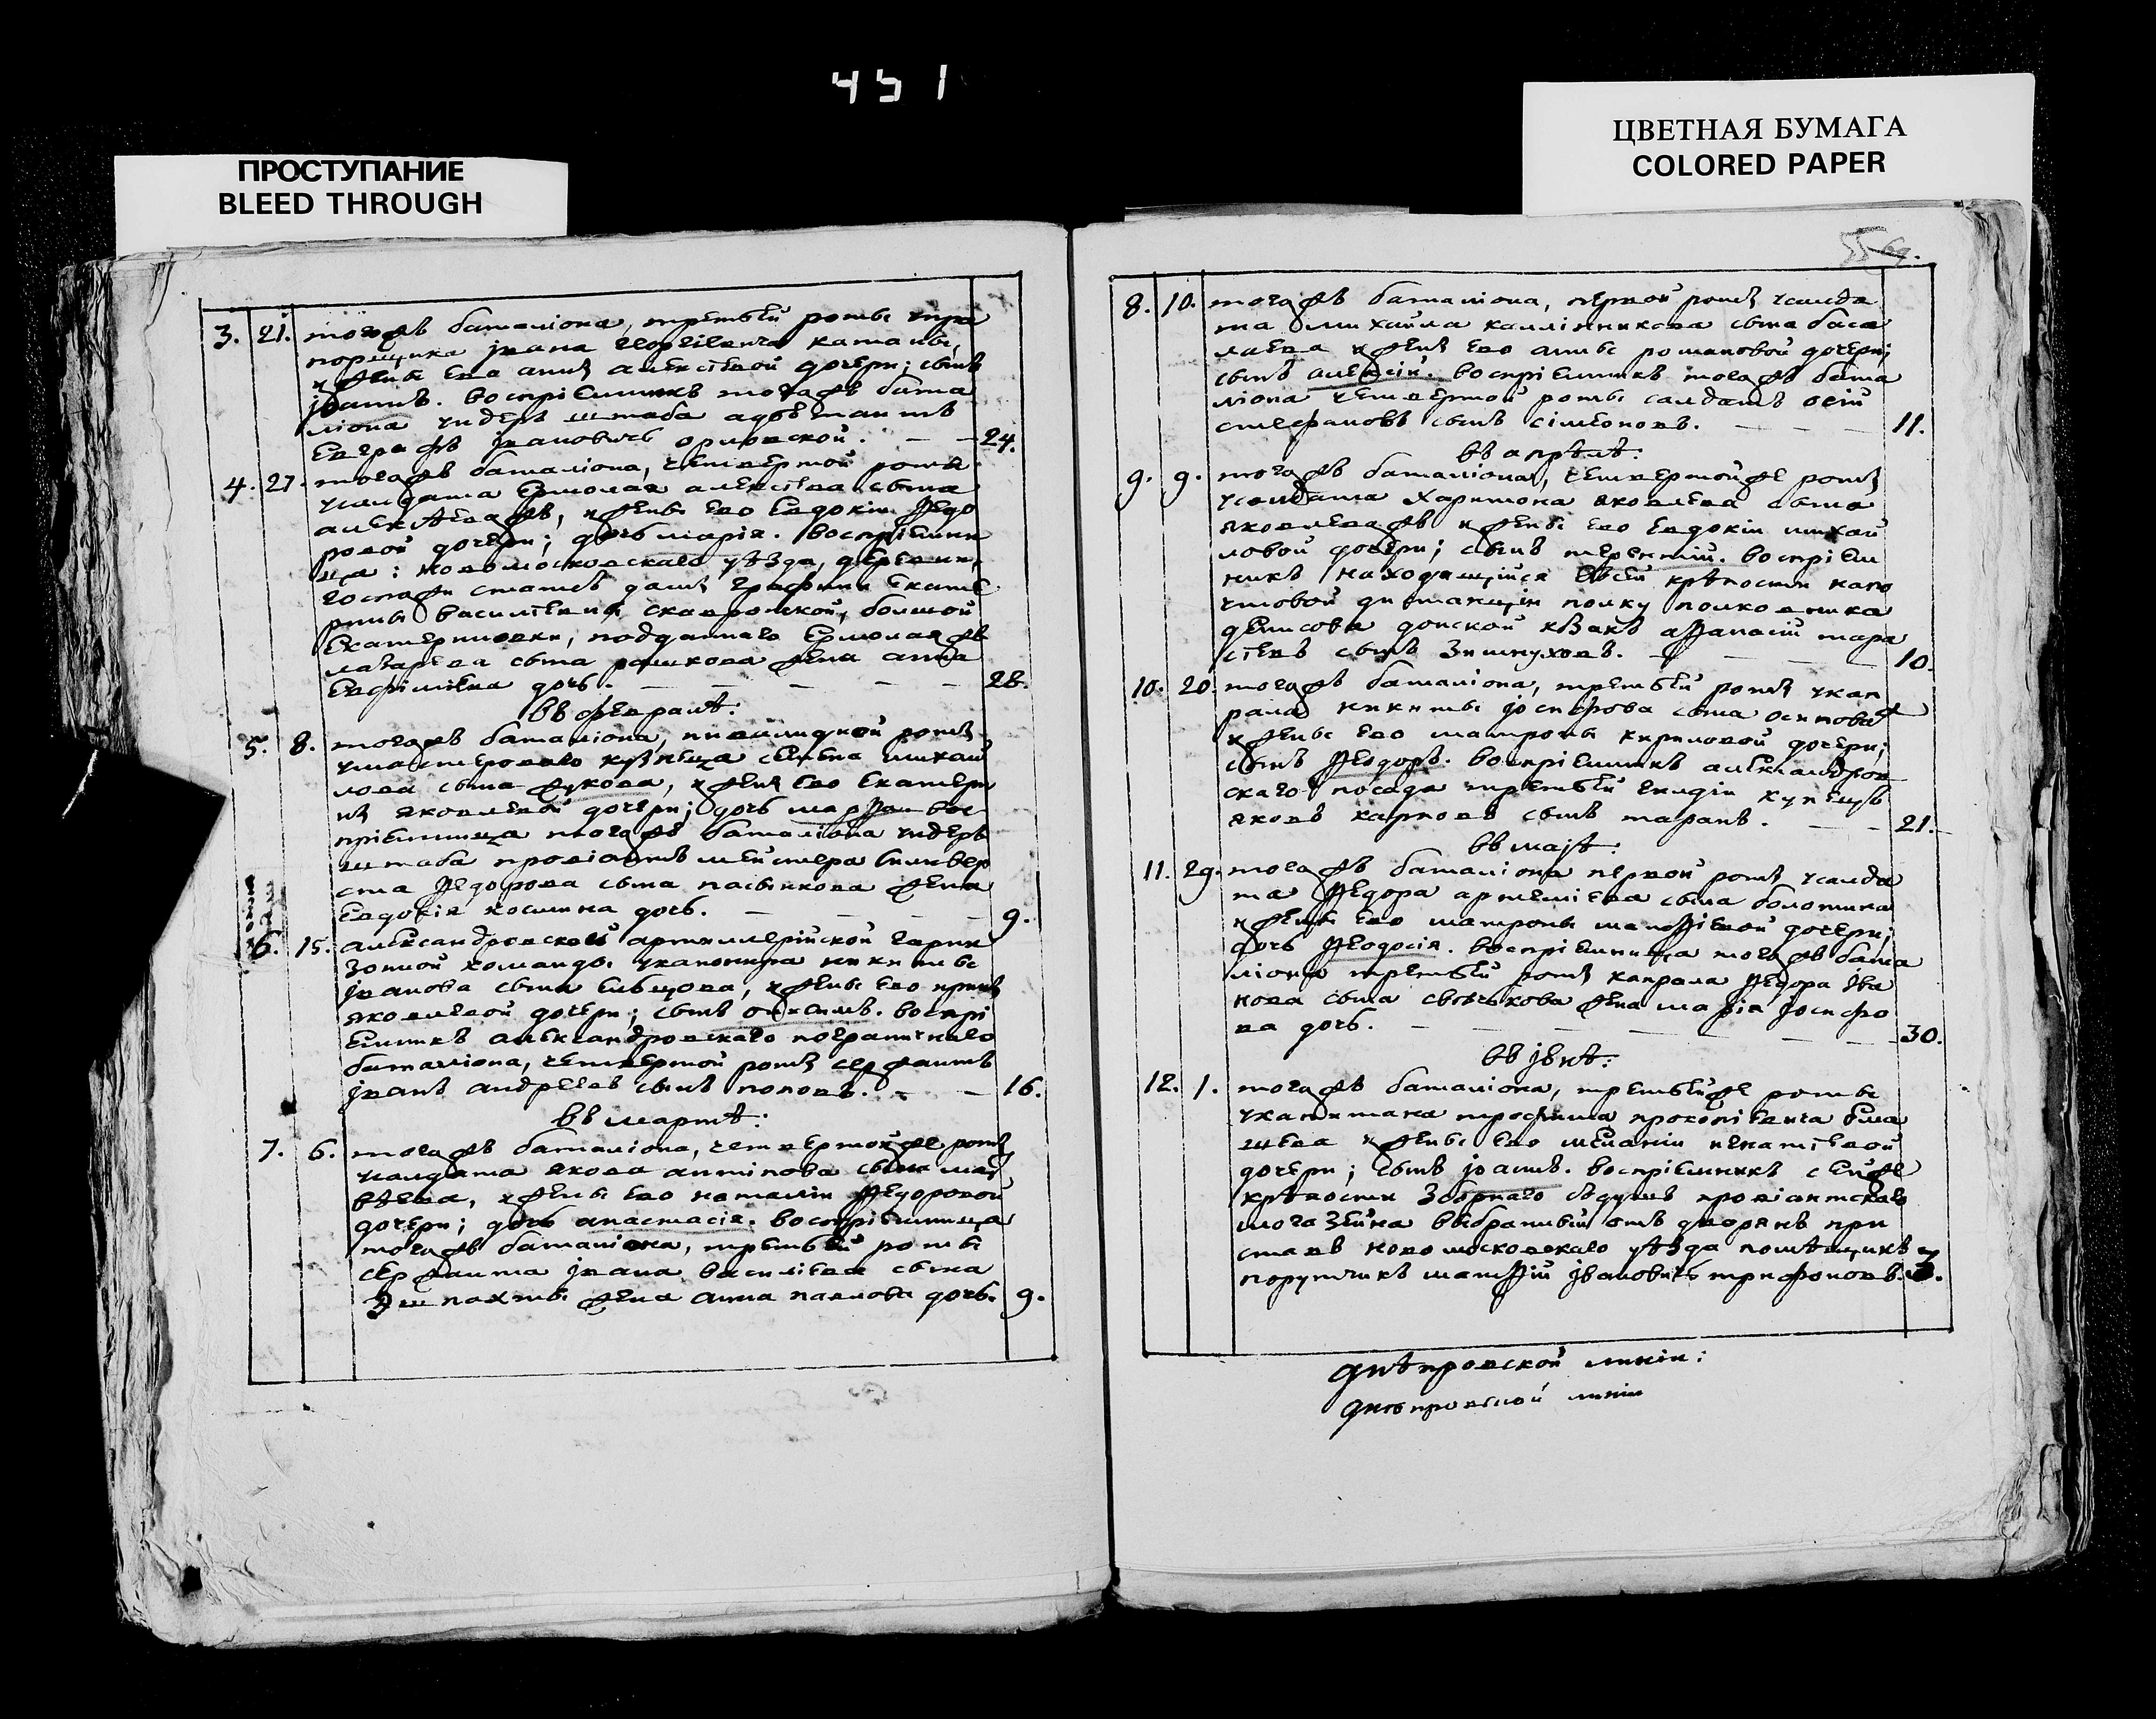 451
ПРОСТУПАНИЕ
BLEED THROUGH
ЦВЕТНАЯ БУМАГА
COLORED PAPER
55
3. 21. тогожъ баталіона, третьей роты упра
порщика Івана
жены ево анны алексѣевой дочери; сынъ
Іоаннъ. воспріемникъ тогожъ бата
ліона ундеръ штаба адъютантъ
Евграфъ Івановичь орловской. 24.
4. 27. тогожъ баталіона, четвертой роты
усалдата Ермолая алексѣева сына
жены ево Евдокіи Ѳедо
ровой дочери; дочь марія. воспріемни
ца: новомосковскаго уѣзда, деревни,
госпожи статсъ дамы графини Екате
рины василіевны скавронской, болшой
Екатериновки, подданнаго Ермолая
лазарева сына рошкова жена анна
Евфиміева дочь. 28.
въ февралѣ:
5. 8. тогожъ баталіона, инвалидной роты
умастероваго кузнеца семена михай
лова сына жукова, жены ево Екатери
ны яковлевой дочери; дочь марѳа. вос
пріемница тогожъ баталіона ундеръ
штаба провіантъ мейстера
ста Ѳедорова сына пасынкова жена
Евдокія космина дочь. 9.
6. 15. александровской артиллерійской гарни
зонной команды уканонира никиты
Іванова сына жены ево ирины
яковлевой дочери; сынъ воспрі
емникъ александровскаго пограничнаго
баталіона, четвертой роты сержантъ
Іванъ андреевъ сынъ поповъ. 16.
въ мартѣ:
7. 6. тогожъ баталіона, четвертойже роты
усалдата якова антипова сына мат
вѣева, жены ево наталіи Ѳедоровой
дочери; дочь анастасія. воспріемница
тогожъ баталіона, третьей роты
сержанта Івана василіева сына
жена анна павлова дочь. 9.
8. 10. тогожъ баталіона, первой роты усалда
та михайла каллинникова сына баса
лаева жены ево анны романовой дочери;
сынъ алексій. воспріемникъ тогожъ бата
ліона четвертой роты салдатъ осій
стефановъ сынъ сімеоновъ. 11.
въ апрѣлѣ:
9. 9. тогожъ баталіона, четвертойже роты
усалдата харитона яковлева сына
яковлева жены ево Евдокіи михай
ловой дочери; сынъ терентій. воспріем
никъ находящійся въсей крѣпости
дистанціи полку полковника
денисова донской казакъ аѳанасій тара
сіевъ сынъ зимнуховъ. 10.
10. 20. тогожъ баталіона, третьей роты укап
рала никиты іосифова сына осипова
жены ево матроны кириловой дочери;
сынъ Ѳеодоръ. воспріемникъ александров
скаго посада третьей гилдіи купецъ
яковъ карповъ сынъ таранъ. 21.
въ маіѣ:
11. 29. тогожъ баталіона первой роты усалда
та Ѳедора артеміева сына болотина
жены ево матроны матѳіевой дочери;
дочь Ѳеодосія. воспріемница тогожъ бата
ліона третьей роты капрала Ѳедора Іва
нова сына жена марія Іосифо
ва дочь. 30.
въ іюнѣ:
12. 1. тогожъ баталіона, третьейже роты
укапитана трофима прокопіевича
шева жены ево меланіи игнатіевой
дочери; сынъ іоаннъ. воспріемникъ сейже
крѣпости провіантскаго
магазейна выбранный отъ дворянъ при
ставъ новомосковскаго уѣзда помѣщикъ
порутчикъ матѳій Івановичь трифоновъ. 3.
днѣпровской линіи:
днѣпровской линіи